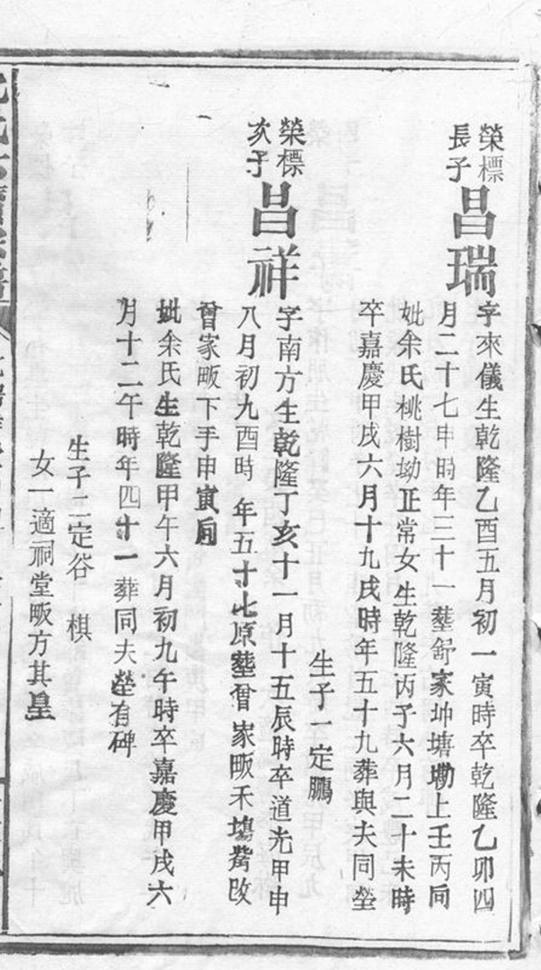 榮標
長子
昌瑞
字來儀生乾隆乙酉五月初一寅時卒乾隆乙卯四
月二十七申時年三十一塟舒家坤塘墈上壬丙向
妣余氏桃樹坳正常女生乾隆丙子六月二十未時
卒嘉慶甲戌六月十九戌時年五十九葬與夫同塋
生子一定鵬
榮標
次子
昌祥
字南方生乾隆丁亥十一月十五辰時卒道光甲申
八月初九酉時年五十七原塟曾家畈禾塲改
曾家畈下手申寅向
妣余氏生乾隆甲午六月初九午時卒嘉慶甲戌六
月十二午時年四十一葬同夫塋有碑
生子二定谷 棋
女一適祠堂畈方其皇